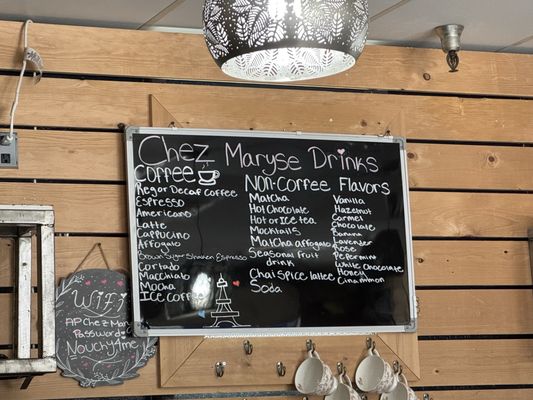 Chez Maryse Drinks
Coffee
Reg or Decaf Coffee
Espresso
Americano
Latte
Cappucino
Affogato
Brown Sugar Shaken Espresso
Cortado
Macchiato
Mocha
Ice Coffee
Non-Coffee
Matcha
Hot Chocolate
Hot or ICE tea
Mocktails
Matcha affogato
Seasonal fruit
drink
Chai Spice lattee
Soda
Flavors
Vanilla
Hazelnut
Carmel
Chocolate
Banana
Lavender
Rose
Pepermint
White Chocolate
Honey
Cinnamon
WiFi
AP Chez Mar
Password
Nouchytme